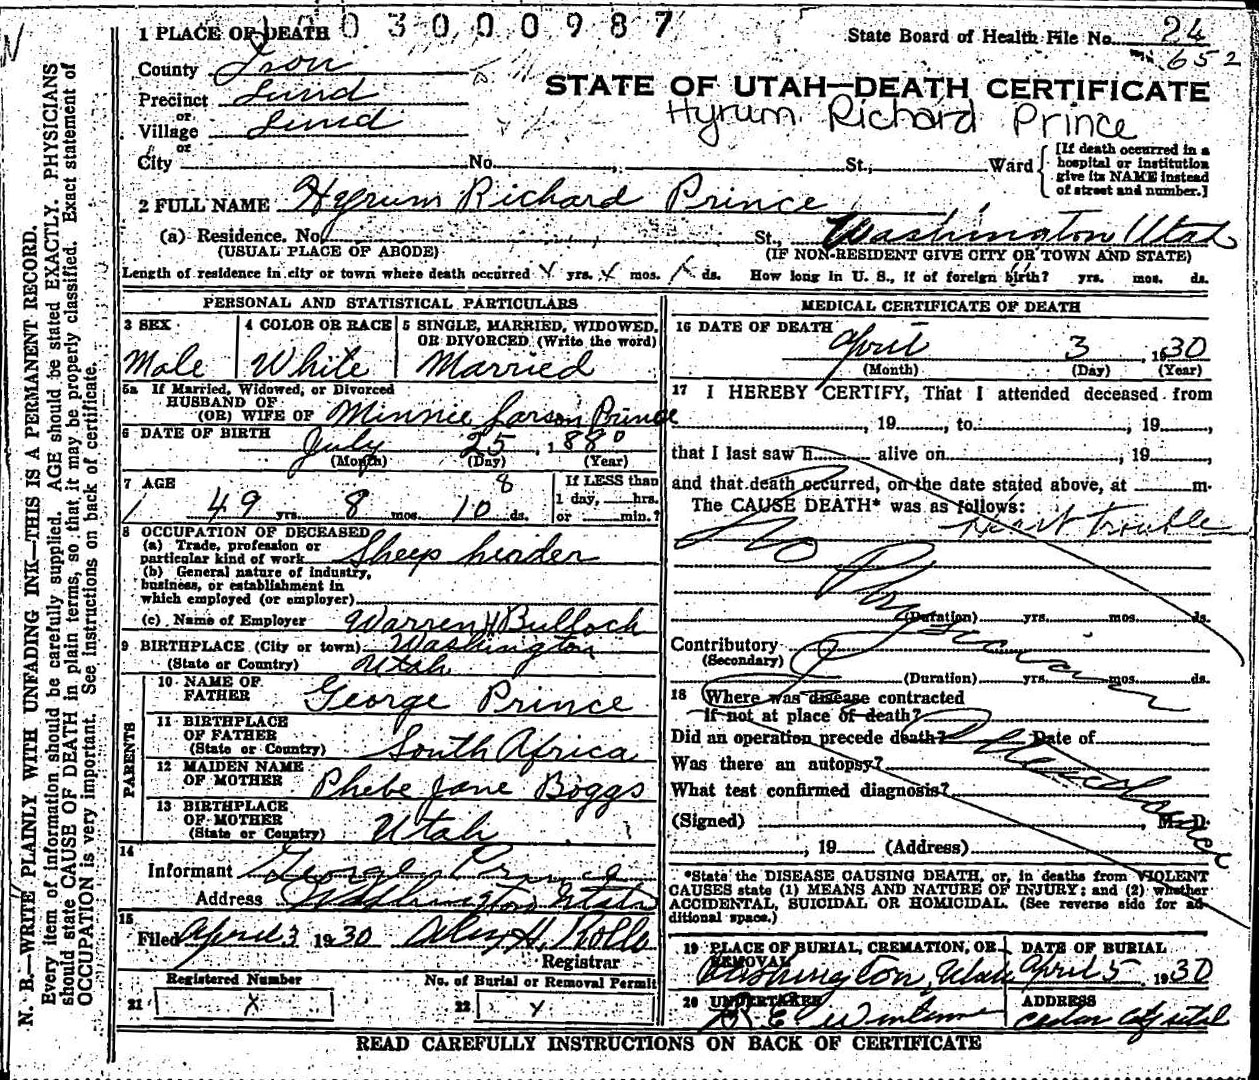 0 3 0 0 0 9 8 7
1 PLACE OF DEATH
State Board of Health File No. 24
652
County Iron
STATE OF UTAH—DEATH CERTIFICATE
Precinct Lund
or
Hyrum Richard Prince
Village Lund
or
City No. St., Ward
[If death occurred in a hospital or institution give its NAME instead of street and number.]
2 FULL NAME Hyrum Richard Prince
(a) Residence. No. St., Washington Utah
(USUAL PLACE OF ABODE) (IF NON-RESIDENT GIVE CITY OR TOWN AND STATE)
Length of residence in city or town where death occurred yrs. mos. ds. How long in U. S., if of foreign birth? yrs. mos. ds.
PERSONAL AND STATISTICAL PARTICULARS
3 SEX
Male
4 COLOR OR RACE
White
5 SINGLE, MARRIED, WIDOWED,
OR DIVORCED (Write the word)
Married
5a If Married, Widowed, or Divorced
HUSBAND OF
(OR) WIFE OF Minnie Larson Prince
6 DATE OF BIRTH July 25, 1880
(Month) (Day) (Year)
7 AGE 49 yrs. 8 mos. 10 ds. 8
If LESS than
1 day, hrs.
or min.?
8 OCCUPATION OF DECEASED
(a) Trade, profession or
particular kind of work Sheep herder
(b) General nature of industry,
business, or establishment in
which employed (or employer)
(c) Name of Employer Warren H Bulloch
9 BIRTHPLACE (City or town) Washington
(State or Country) Utah
PARENTS
10 NAME OF
FATHER George Prince
11 BIRTHPLACE
OF FATHER
(State or Country) South Africa
12 MAIDEN NAME
OF MOTHER Phebe Jane Boggs
13 BIRTHPLACE
OF MOTHER
(State or Country) Utah
14
Informant George Prince
Address Washington Utah
15
Filed April 3 1930 Alex H. Rollo
Registrar
Registered Number No. of Burial or Removal Permit
21 X 22 X
MEDICAL CERTIFICATE OF DEATH
16 DATE OF DEATH April 3, 1930
(Month) (Day) (Year)
17 I HEREBY CERTIFY, That I attended deceased from
, 19 , to , 19 ,
that I last saw h alive on , 19
and that death occurred, on the date stated above, at m.
The CAUSE DEATH* was as follows:
Heart trouble
No Physician in Attendance
(Duration) yrs. mos. ds.
Contributory
(Secondary)
(Duration) yrs. mos. ds.
18 Where was disease contracted
if not at place of death?
Did an operation precede death? Date of
Was there an autopsy?
What test confirmed diagnosis?
(Signed) , M. D.
, 19 (Address)
*State the DISEASE CAUSING DEATH, or, in deaths from VIOLENT
CAUSES state (1) MEANS AND NATURE OF INJURY; and (2) whether
ACCIDENTAL, SUICIDAL OR HOMICIDAL. (See reverse side for ad-
ditional space.)
19 PLACE OF BURIAL, CREMATION, OR
REMOVAL
Washington, Utah
DATE OF BURIAL
April 5, 1930
20 UNDERTAKER
ADDRESS
Cedar City Utah
READ CAREFULLY INSTRUCTIONS ON BACK OF CERTIFICATE
N. B.—WRITE PLAINLY WITH UNFADING INK—THIS IS A PERMANENT RECORD.
Every item of information should be carefully supplied. AGE should be stated EXACTLY. PHYSICIANS
should state CAUSE OF DEATH in plain terms, so that it may be properly classified. Exact statement of
OCCUPATION is very important. See instructions on back of certificate.